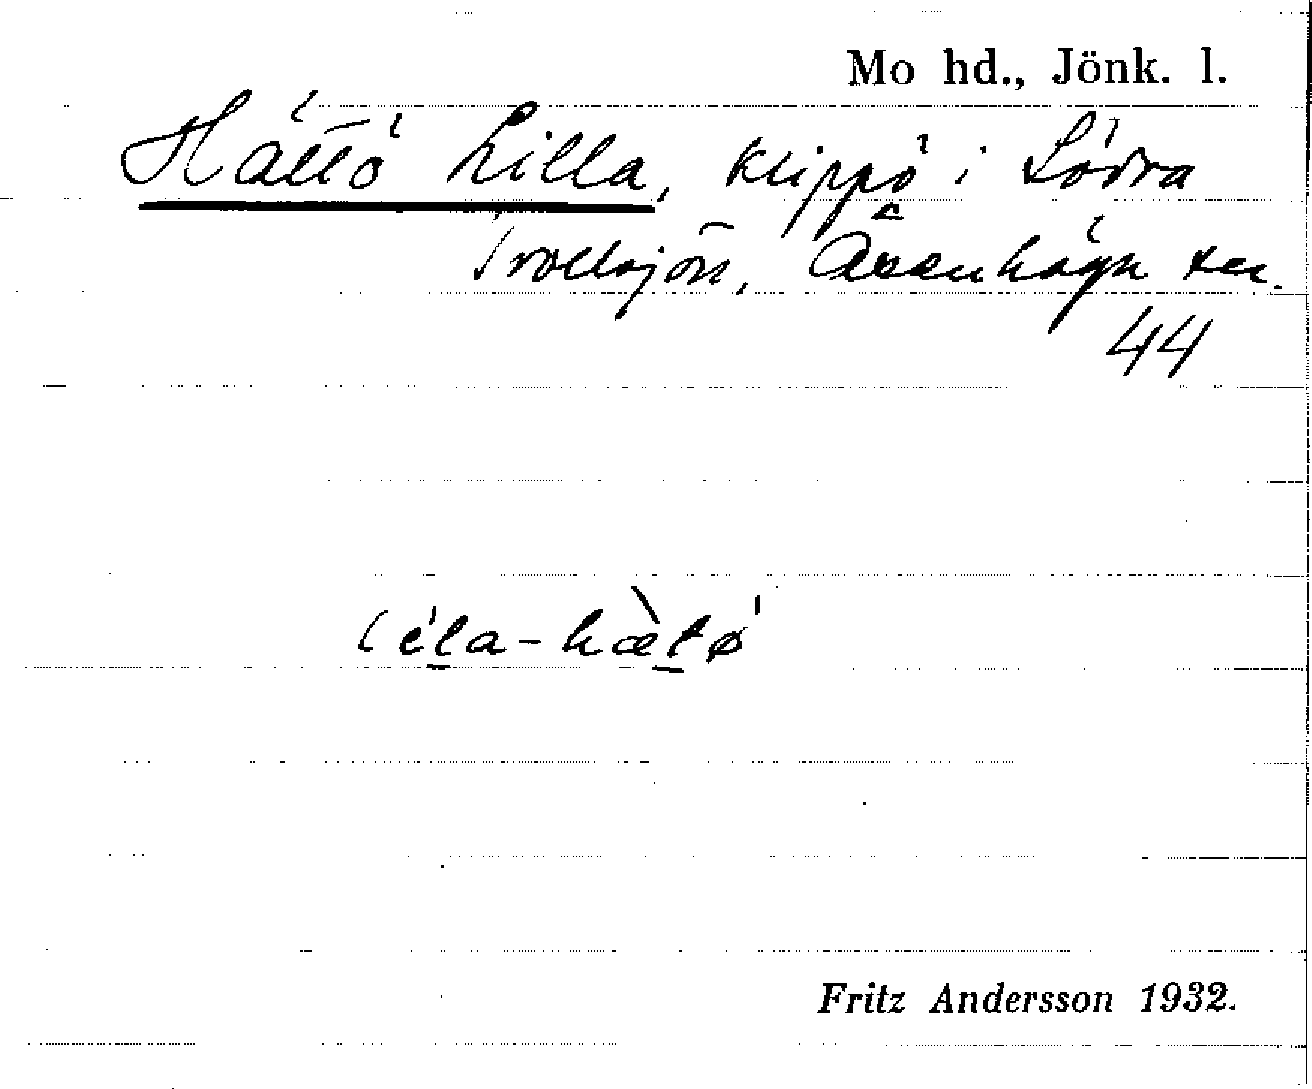 Mo hd., Jönk. l.
Hättö Lilla, klippö i Södra
Trollsjön, Åsenhöga sn.
44
léla-hæ̀tø
Fritz Andersson 1932.